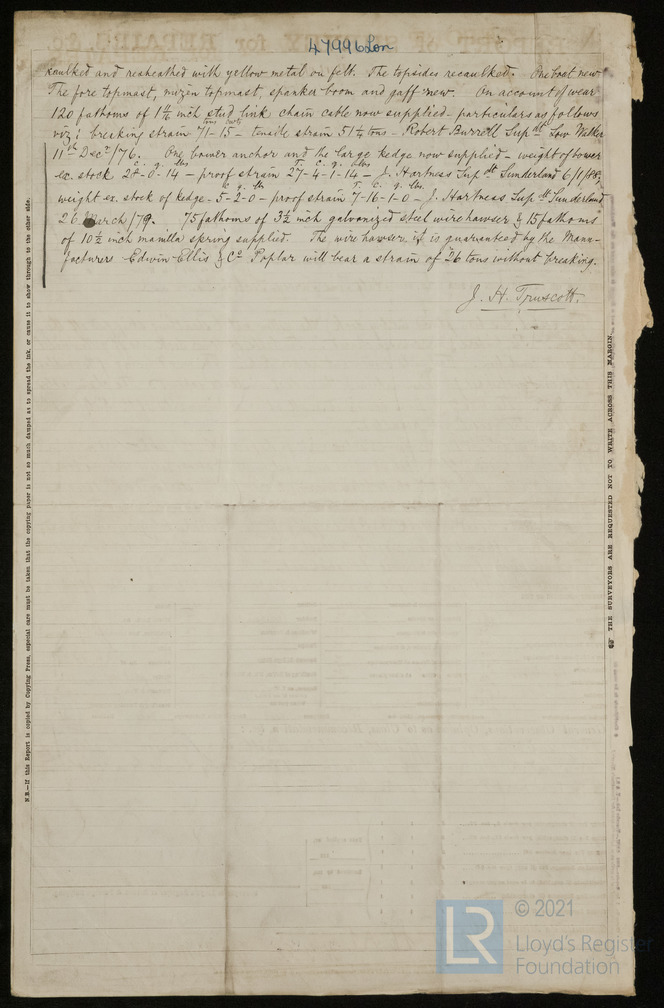 47996 Lon
caulked and resheathed with yellow metal on felt. The topsides recaulked. One boat new
The fore topmast, mizen topmast, spanker boom and gaff new. On account of wear
120 fathoms of 1 4/16 inch stud link chain cable now supplied - particulars as follows
tons cwts
viz: breaking strain 71-15 - tensile strain 51 1/4 tons - Robert Burrell Supdt Low Walker
11th Decr/76. One bower anchor and the large kedge now supplied - weight of bower
C. q. lbs T. C. q. lbs
ex. stock 28-0-14 - proof strain 27-4-1-14 - J. Hartness Supdt Sunderland 6/1/85,
C. q. lbs T. C. q. lbs.
weight ex. stock of kedge - 5-2-0 - proof strain 7-16-1-0 - J. Hartness Supdt Sunderland
26 March/79. 75 fathoms of 3 1/2 inch galvanized steel wire hawser & 15 fathoms
of 10 1/2 inch manilla spring supplied. The wire hawser it is guaranteed by the Manu-
facturers Edwin Ellis & Co Poplar will bear a strain of 26 tons without breaking.
J. H. Truscott.
N.B.—If this Report is copied by Copying Press, especial care must be taken that the copying paper is not so much damped as to spread the ink, or cause it to show through to the other side.
THE SURVEYORS ARE REQUESTED NOT TO WRITE ACROSS THIS MARGIN.
LR
© 2021
Lloyd's Register
Foundation